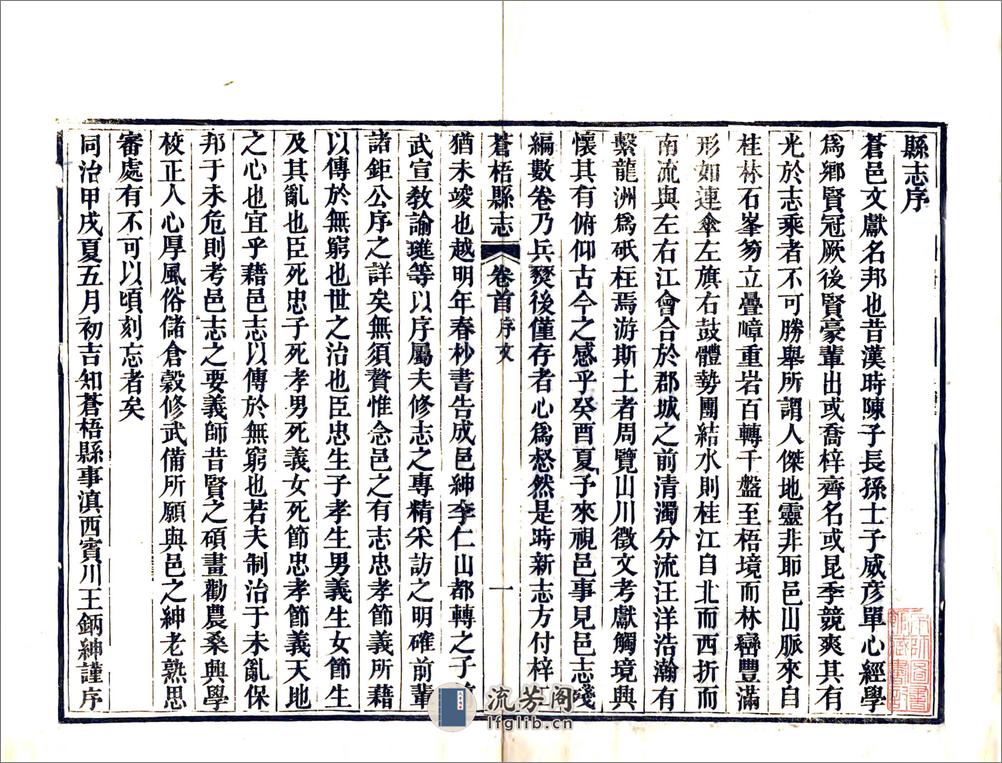 縣志序
蒼邑文獻名邦也昔漢時陳子長孫士子威彥單心經學
爲鄉賢冠厥後賢豪輩出或喬梓齊名或昆季競爽其有
光於志乘者不可勝舉所謂人傑地靈非耶邑山脈來自
桂林石峯笏立疊嶂重岩百轉千盤至梧境而林巒豐滿
形如連傘左旗右鼓體勢團結水則桂江自北而西折而
南流與左右江會合於郡城之前清濁分流汪洋浩瀚有
繫龍洲爲砥柱焉游斯土者周覽山川徵文考獻觸境興
懷其有俯仰古今之感乎癸酉夏予來視邑事見邑志殘
編數卷乃兵燹後僅存者心爲惄然是時新志方付梓
蒼梧縣志 卷首 序文 一
猶未竣也越明年春杪書告成邑紳李仁山都轉之子
武宣教諭璡等以序屬夫修志之專精采訪之明確前輩
諸鉅公序之詳矣無須贅惟念邑之有志忠孝節義所藉
以傳於無窮也世之治也臣忠生子孝生男義生女節生
及其亂也臣死忠子死孝男死義女死節忠孝節義天地
之心也宜乎藉邑志以傳於無窮也若夫制治于未亂保
邦于未危則考邑志之要義師昔賢之碩畫勸農桑興學
校正人心厚風俗儲倉穀修武備所願與邑之紳老熟思
審處有不可以頃刻忘者矣
同治甲戌夏五月初吉知蒼梧縣事滇西賓川王鋿紳謹序
流芳阁
lfglib.cn